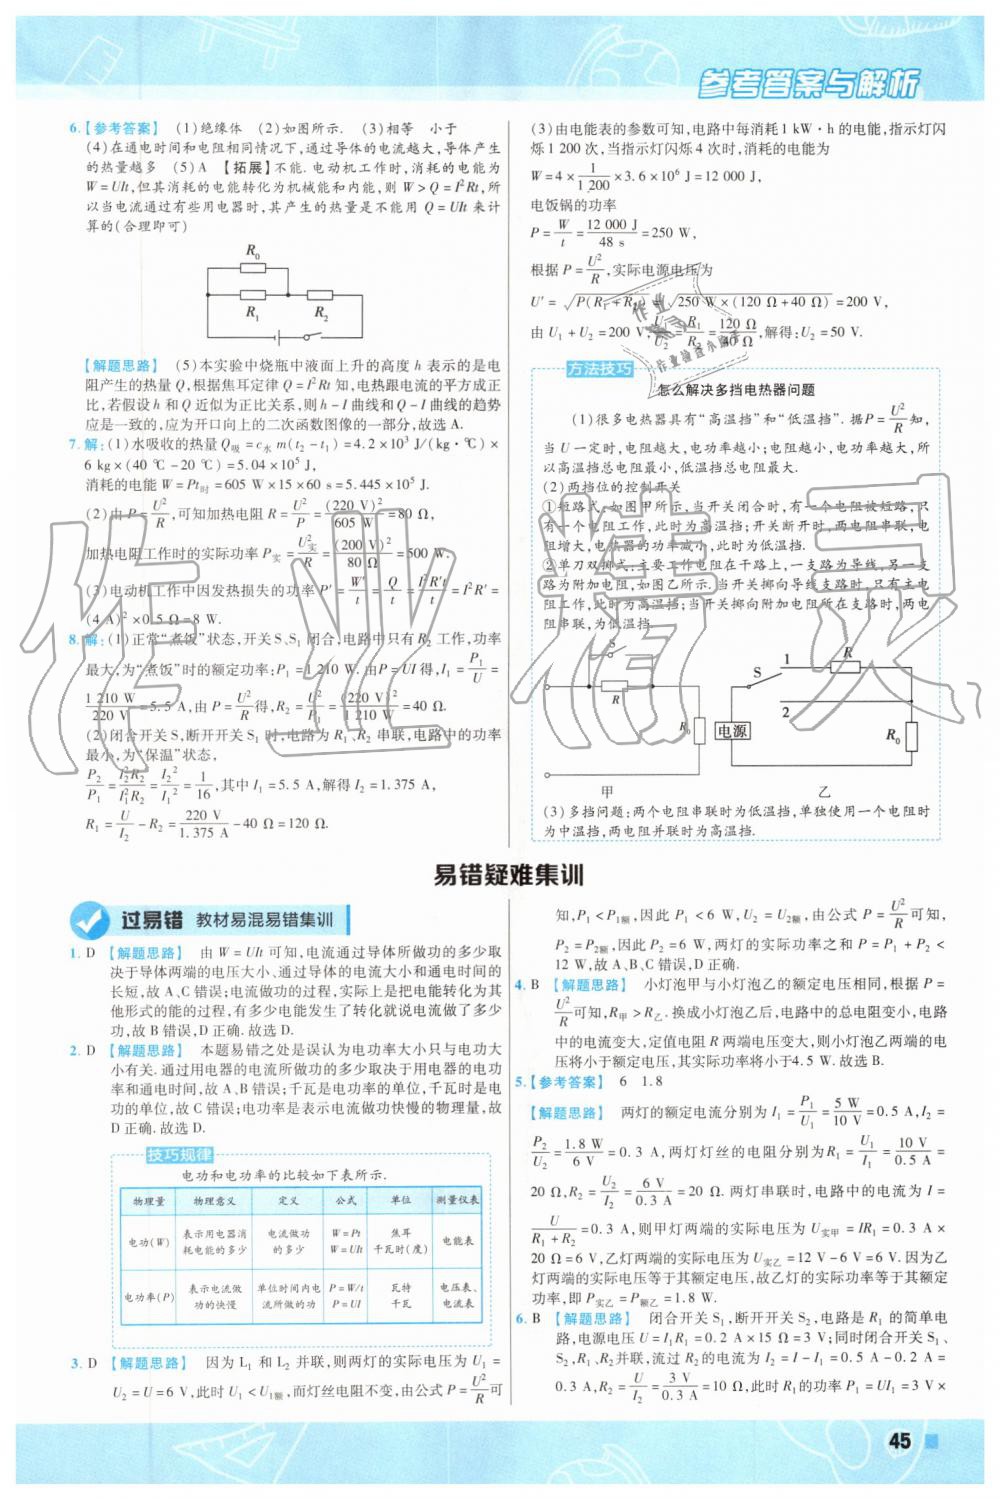 参考答案与解析
6.【参考答案】 (1)绝缘体 (2)如图所示. (3)相等 小于
(4)在通电时间和电阻相同情况下,通过导体的电流越大,导体产生
的热量越多 (5)A 【拓展】不能.电动机工作时,消耗的电能为
W=UIt,但其消耗的电能转化为机械能和内能,则 W>Q=I²Rt,所
以当电流通过有些用电器时,其产生的热量是不能用 Q=UIt 来计
算的(合理即可)
R₀
R₁ R₂
【解题思路】 (5)本实验中烧瓶中液面上升的高度 h 表示的是电
阻产生的热量 Q,根据焦耳定律 Q=I²Rt 知,电热跟电流的平方成正
比,若假设 h 和 Q 近似为正比关系,则 h-I 曲线和 Q-I 曲线的趋势
应是一致的,应为开口向上的二次函数图像的一部分,故选 A.
7.解:(1)水吸收的热量 Q吸=c水 m(t₂-t₁)=4.2×10³ J/(kg·℃)×
6 kg×(40 ℃-20 ℃)=5.04×10⁵ J,
消耗的电能 W=Pt时=605 W×15×60 s=5.445×10⁵ J.
(2)由 P=U²/R,可知加热电阻 R=U²/P=(220 V)²/605 W=80 Ω,
加热电阻工作时的实际功率 P实=U实²/R=(200 V)²/80 Ω=500 W.
(3)电动机工作中因发热损失的功率 P′=W′/t=Q/t=I²R′t/t=I²R′=
(4 A)²×0.5 Ω=8 W.
8.解:(1)正常“煮饭”状态,开关 S、S₁ 闭合,电路中只有 R₂ 工作,功率
最大,为“煮饭”时的额定功率:P₁=1 210 W.由 P=UI 得,I₁=P₁/U=
1 210 W/220 V=5.5 A,由 P=U²/R得,R₂=U²/P₁=(220 V)²/1 210 W=40 Ω.
(2)闭合开关 S,断开开关 S₁ 时,电路为 R₁、R₂ 串联,电路中的功率
最小,为“保温”状态,
P₂/P₁=I₂²R₂/I₁²R₂=I₂²/I₁²=1/16,其中 I₁=5.5 A,解得 I₂=1.375 A,
R₁=U/I₂-R₂=220 V/1.375 A-40 Ω=120 Ω.
(3)由电能表的参数可知,电路中每消耗 1 kW·h 的电能,指示灯闪
烁 1 200 次,当指示灯闪烁 4 次时,消耗的电能为
W=4×1/1 200×3.6×10⁶ J=12 000 J,
电饭锅的功率
P=W/t=12 000 J/48 s=250 W,
根据 P=U²/R,实际电源电压为
U′=√P(R₁+R₂)=√250 W×(120 Ω+40 Ω)=200 V,
由 U₁+U₂=200 V,U₁/U₂=R₁/R₂=120 Ω/40 Ω,解得:U₂=50 V.
方法技巧
怎么解决多挡电热器问题
(1)很多电热器具有“高温挡”和“低温挡”.据P=U²/R知,
当 U 一定时,电阻越大,电功率越小;电阻越小,电功率越大,所
以高温挡总电阻最小,低温挡总电阻最大.
(2)两挡位的控制开关
①短路式:如图甲所示,当开关闭合时,有一个电阻被短路,只
有一个电阻工作,此时为高温挡;开关断开时,两电阻串联,电
阻增大,电热器的功率减小,此时为低温挡.
②单刀双掷式:主要工作电阻在干路上,一支路为导线,另一支
路为附加电阻,如图乙所示.当开关掷向导线支路时,只有主电
阻工作,此时为高温挡;当开关掷向附加电阻所在支路时,两电
阻串联,为低温挡.
S
R
R₀
甲
S 1 R
2
电源 R₀
乙
(3)多挡问题:两个电阻串联时为低温挡,单独使用一个电阻时
为中温挡,两电阻并联时为高温挡.
易错疑难集训
过易错 教材易混易错集训
1. D 【解题思路】 由 W=UIt 可知,电流通过导体所做功的多少取
决于导体两端的电压大小、通过导体的电流大小和通电时间的
长短,故 A、C 错误;电流做功的过程,实际上是把电能转化为其
他形式的能的过程,有多少电能发生了转化就说电流做了多少
功,故 B 错误,D 正确.故选 D.
2. D 【解题思路】 本题易错之处是误认为电功率大小只与电功大
小有关.通过用电器的电流所做功的多少取决于用电器的电功
率和通电时间,故 A、B 错误;千瓦是电功率的单位,千瓦时是电
功的单位,故 C 错误;电功率是表示电流做功快慢的物理量,故
D 正确.故选 D.
技巧规律
电功和电功率的比较如下表所示.
物理量 物理意义 定义 公式 单位 测量仪表
电功(W) 表示用电器消耗电能的多少 电流做功的多少 W=Pt W=UIt 焦耳 千瓦时(度) 电能表
电功率(P) 表示电流做功的快慢 单位时间内电流所做的功 P=W/t P=UI 瓦特 千瓦 电压表、电流表
3. D 【解题思路】 因为 L₁ 和 L₂ 并联,则两灯的实际电压为 U₁=
U₂=U=6 V,此时 U₁<U₁额,而灯丝电阻不变,由公式 P=U²/R可
知,P₁<P₁额,因此 P₁<6 W,U₂=U₂额,由公式 P=U²/R可知,
P₂=P₂额,因此 P₂=6 W,两灯的实际功率之和 P=P₁+P₂<
12 W,故 A、B、C 错误,D 正确.
4. B 【解题思路】 小灯泡甲与小灯泡乙的额定电压相同,根据 P=
U²/R可知,R甲>R乙.换成小灯泡乙后,电路中的总电阻变小,电路
中的电流变大,定值电阻 R 两端电压变大,则小灯泡乙两端的电
压将小于额定电压,其实际功率将小于4.5 W.故选 B.
5.【参考答案】 6 1.8
【解题思路】 两灯的额定电流分别为 I₁=P₁/U₁=5 W/10 V=0.5 A,I₂=
P₂/U₂=1.8 W/6 V=0.3 A,两灯灯丝的电阻分别为R₁=U₁/I₁=10 V/0.5 A=
20 Ω,R₂=U₂/I₂=6 V/0.3 A=20 Ω.两灯串联时,电路中的电流为 I=
U/R₁+R₂=0.3 A,则甲灯两端的实际电压为 U实甲=IR₁=0.3 A×
20 Ω=6 V,乙灯两端的实际电压为 U实乙=12 V-6 V=6 V.因为乙
灯两端的实际电压等于其额定电压,故乙灯的实际功率等于其额定
功率,即 P实乙=P额乙=1.8 W.
6. B 【解题思路】 闭合开关 S₁,断开开关 S₂,电路是 R₁ 的简单电
路,电源电压 U=I₁R₁=0.2 A×15 Ω=3 V;同时闭合开关 S₁、
S₂,R₁、R₂并联,流过 R₂ 的电流为 I₂=I-I₁=0.5 A-0.2 A=
0.3 A,R₂=U/I₂=3 V/0.3 A=10 Ω,此时 R₁的功率 P₁=UI₁=3 V×
45
作业精灵